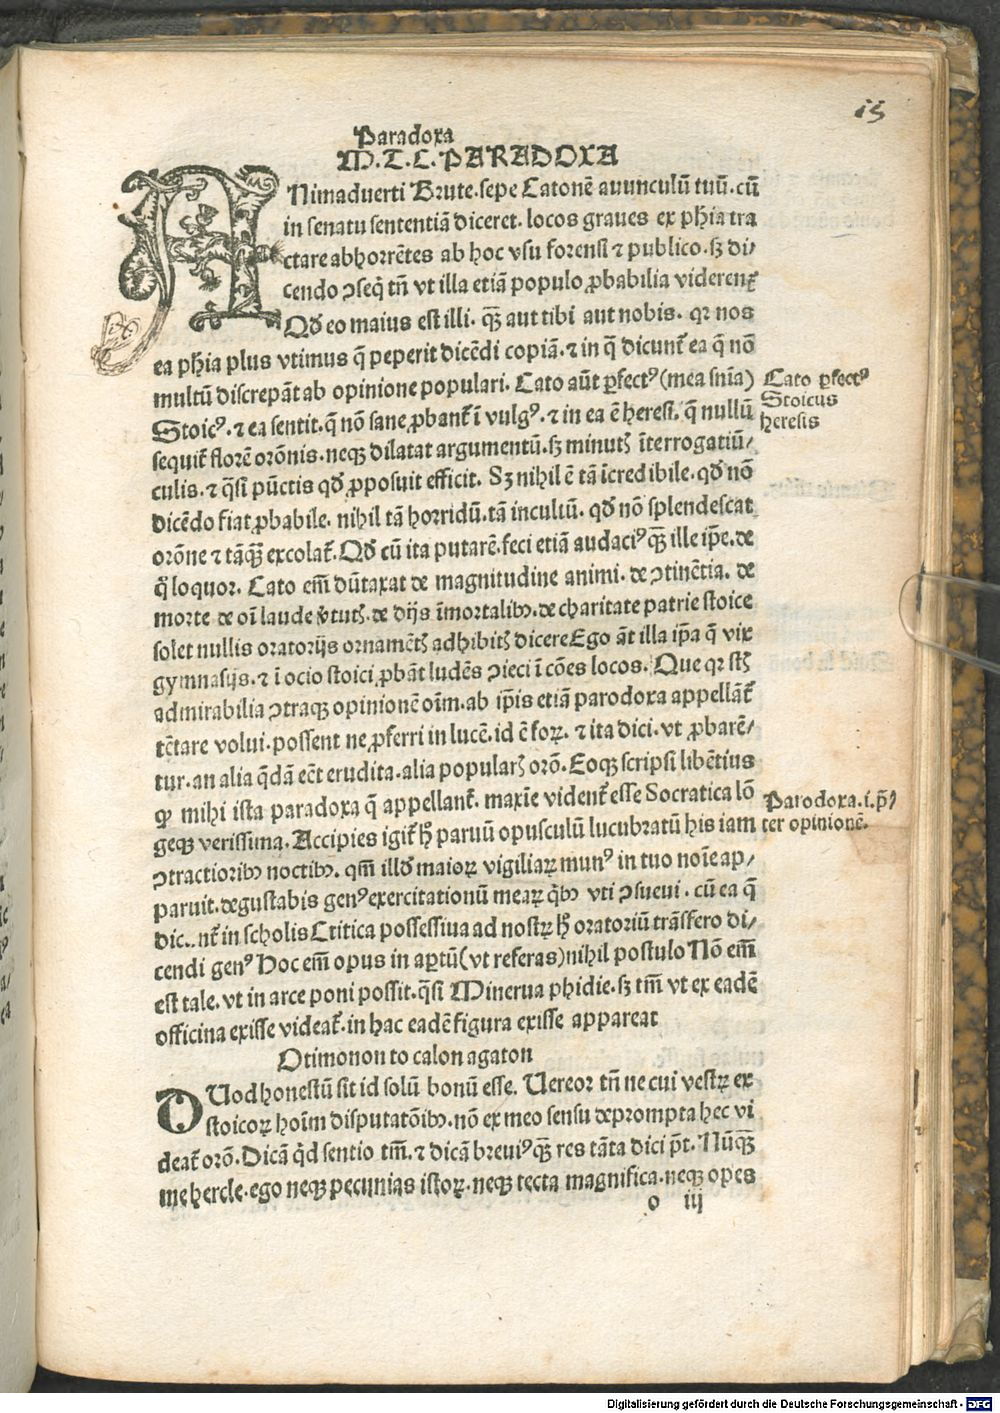 15
Paradoxa
M.T.C. PARADOXA
ANimaduerti Brute. sepe Catonē auunculū tuū. cū
in senatu sententiā diceret. locos graues ex phia tra
ctare abhorrētes ab hoc vsu forensi ⁊ publico. sꝫ di⸗
cendo ↄseq̄ tñ vt illa etiā populo ꝓbabilia viderenꝶ
Qd̛ eo maius est illi. qꝫ̄ aut tibi aut nobis. qꝛ nos
ea phia plus vtimus q̄ peperit dicēdi copiā. ⁊ in q̄ dicunt᷑ ea q̄ nō
multū discrepāt ab opinione populari. Cato aūt ꝑfectꝰ (mea snīa)
Cato ꝑfectꝰ
Stoicus
heresis
Stoicꝰ. ⁊ ea sentit. q̄ nō sane ꝓbant᷑ ī vulgꝰ. ⁊ in ea ē heresi. q̄ nullū
sequit᷑ florē orōnis. neqꝫ dilatat argumentū. sꝫ minutꝭ īterrogatiū⸗
culis. ⁊ q̄si pūctis qd̛ ꝓposuit efficit. Sꝫ nihil ē tā īcredibile. qd̛ nō
dicēdo fiat ꝓbabile. nihil tā horridū. tā incultū. qd̛ nō splendescat
orōne ⁊ tāqꝫ̄ excolat᷑. Qd̛ cū ita putarē. feci etiā audaciꝰ qꝫ̄ ille ip̄e. de
q̊ loquor. Cato em̄ dūtaxat de magnitudine animi. de ↄtinētia. de
morte de oī laude v̓tutꝭ. de dijs īmortalibꝫ. de charitate patrie stoice
solet nullis oratorijs ornamētꝭ adhibitꝭ dicere Ego āt illa ip̄a q̄ vix
gymnasijs. ⁊ ī ocio stoici ꝓbāt ludēs ↄieci ī cōes locos. Que qꝛ st̄
admirabilia ↄtraqꝫ opinionē oīm. ab ip̄is etiā parodoxa appellāt᷑
tētare volui. possent ne ꝓferri in lucē. id ē foꝝ. ⁊ ita dici. vt ꝓbarē⸗
tur. an alia q̄dā eēt erudita. alia popularꝭ orō. Eoqꝫ scripsi libētius
ꝙ mihi ista paradoxa q̄ appellant᷑. maxīe vident᷑ esse Socratica lō
Parodoxa. i. p̄⸗
ter opinionē.
geqꝫ verissima. Accipies igit᷑ h̄ paruū opusculū lucubratū his iam
ↄtractioribꝫ noctibꝫ. qm̄ illd̛ maioꝝ vigiliaꝝ munꝰ in tuo noīe ap⸗
paruit. degustabis genꝰ exercitationū meaꝝ qͥbꝫ vti ↄsueui. cū ea q̄
dic..nt᷑ in scholis Ctitica possessiua ad nostꝝ h̄ oratoriū trāsfero di⸗
cendi genꝰ Hoc em̄ opus in aꝑtū (vt referas) nihil postulo Nō em̄
est tale. vt in arce poni possit. q̄si Minerua phidie. sꝫ tm̄ vt ex eadē
officina exisse videat᷑. in hac eadē figura exisse appareat
Otimonon to calon agaton
QUod honestū sit id solū bonū esse. Uereor tñ ne cui vestꝝ ex
stoicoꝝ hoīm disputatōibꝫ. nō ex meo sensu deprompta hec vi
deat᷑ orō. Dicā qͥd sentio tm̄. ⁊ dicā breuiꝰ qꝫ̄ res tāta dici p̄t. Nūqꝫ̄
me hercle. ego neqꝫ pecunias istoꝝ. neqꝫ tecta magnifica. neqꝫ opes
o iij
Digitalisierung gefördert durch die Deutsche Forschungsgemeinschaft - DFG